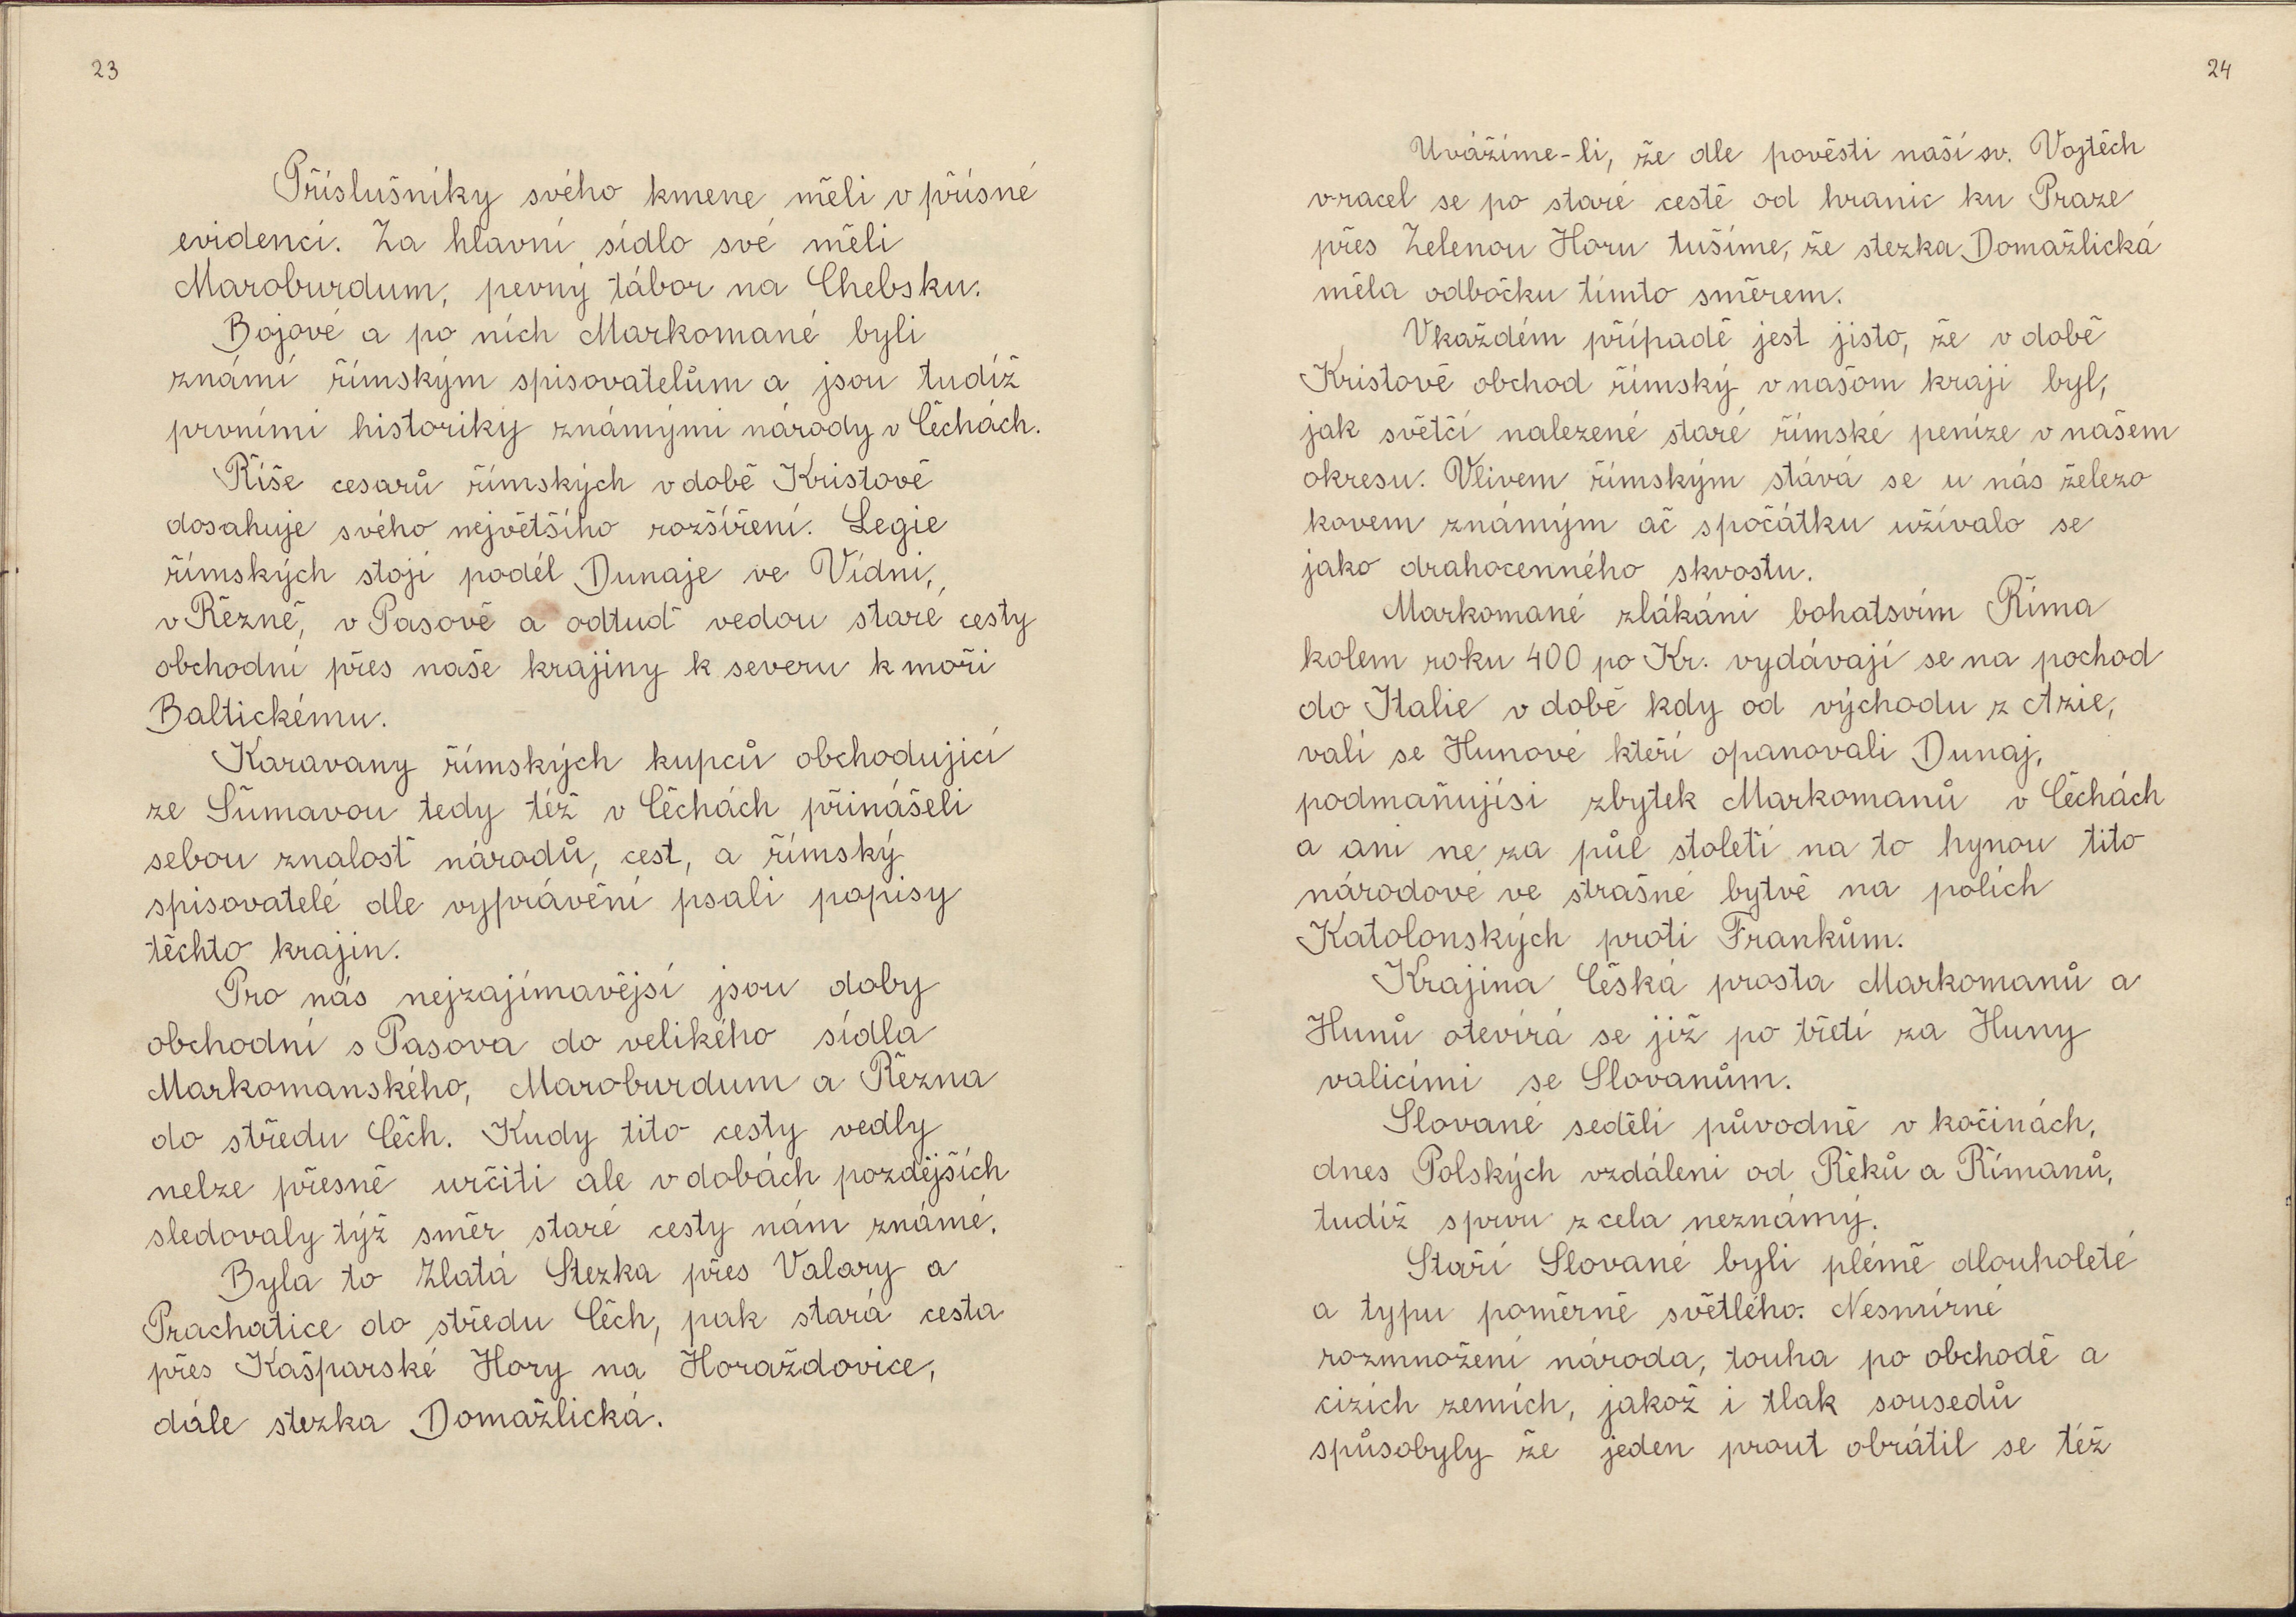 23
Příslušníky svého kmene měli v přísné
evidenci. Za hlavní sídlo své měli
Maroburdum, pevný tábor na Chebsku.
Bojové a po nich Markomané byli
známi římským spisovatelům a jsou tudíž
prvními historiky známými národy v Čechách.
Říše cesarů římských v době Kristově
dosahuje svého největšího rozšíření. Legie
římských stojí podél Dunaje ve Vídni,
v Řezně, v Pasově a odtud vedou staré cesty
obchodní přes naše krajiny k severu k moři
Baltickému.
Karavany římských kupců obchodující
ze Šumavou tedy též v Čechách přinášeli
sebou znalost národů, cest, a římský
spisovatelé dle vyprávění psali popisy
těchto krajin.
Pro nás nejzajímavější jsou doby
obchodní s Pasova do velikého sídla
Markomanského, Maroburdum a Řezna
do středu Čech. Kudy tito cesty vedly
nelze přesně určiti ale v dobách pozdějších
sledovaly týž směr staré cesty nám známé.
Byla to Zlatá Stezka přes Valary a
Prachatice do středu Čech, pak stará cesta
přes Kašparské Hory na Horažďovice,
dále stezka Domažlická.
24
Uvážíme-li, že dle pověsti naší sv. Vojtěch
vracel se po staré cestě od hranic ku Praze
přes Zelenou Horu tušíme, že stezka Domažlická
měla odbočku tímto směrem.
Vkaždém případě jest jisto, že v době
Kristově obchod římský v našom kraji byl,
jak světčí nalezené staré římské peníze v našem
okresu. Vlivem římským stává se u nás železo
kovem známým ač spočátku užívalo se
jako drahocenného skvostu.
Markomané zlákáni bohatsvím Říma
kolem roku 400 po Kr. vydávají se na pochod
do Italie v době kdy od východu z Azie,
valí se Hunové kteří opanovali Dunaj,
podmaňujísi zbytek Markomanů v Čechách
a ani ne za půl století na to hynou tito
národové ve strašné bytvě na polích
Katolonských proti Frankům.
Krajina Česká prosta Markomanů a
Hunů otevírá se již po třetí za Huny
valícími se Slovanům.
Slované seděli původně v kočinách,
dnes Polských vzdáleni od Řeků a Římanů,
tudíž sprvu z cela neznámý.
Staří Slované byli plémě dlouholeté
a typu poměrně světlého. Nesmírné
rozmnožení národa, touha po obchodě a
cizích zemích, jakož i tlak sousedů
spůsobyly že jeden prout obrátil se též